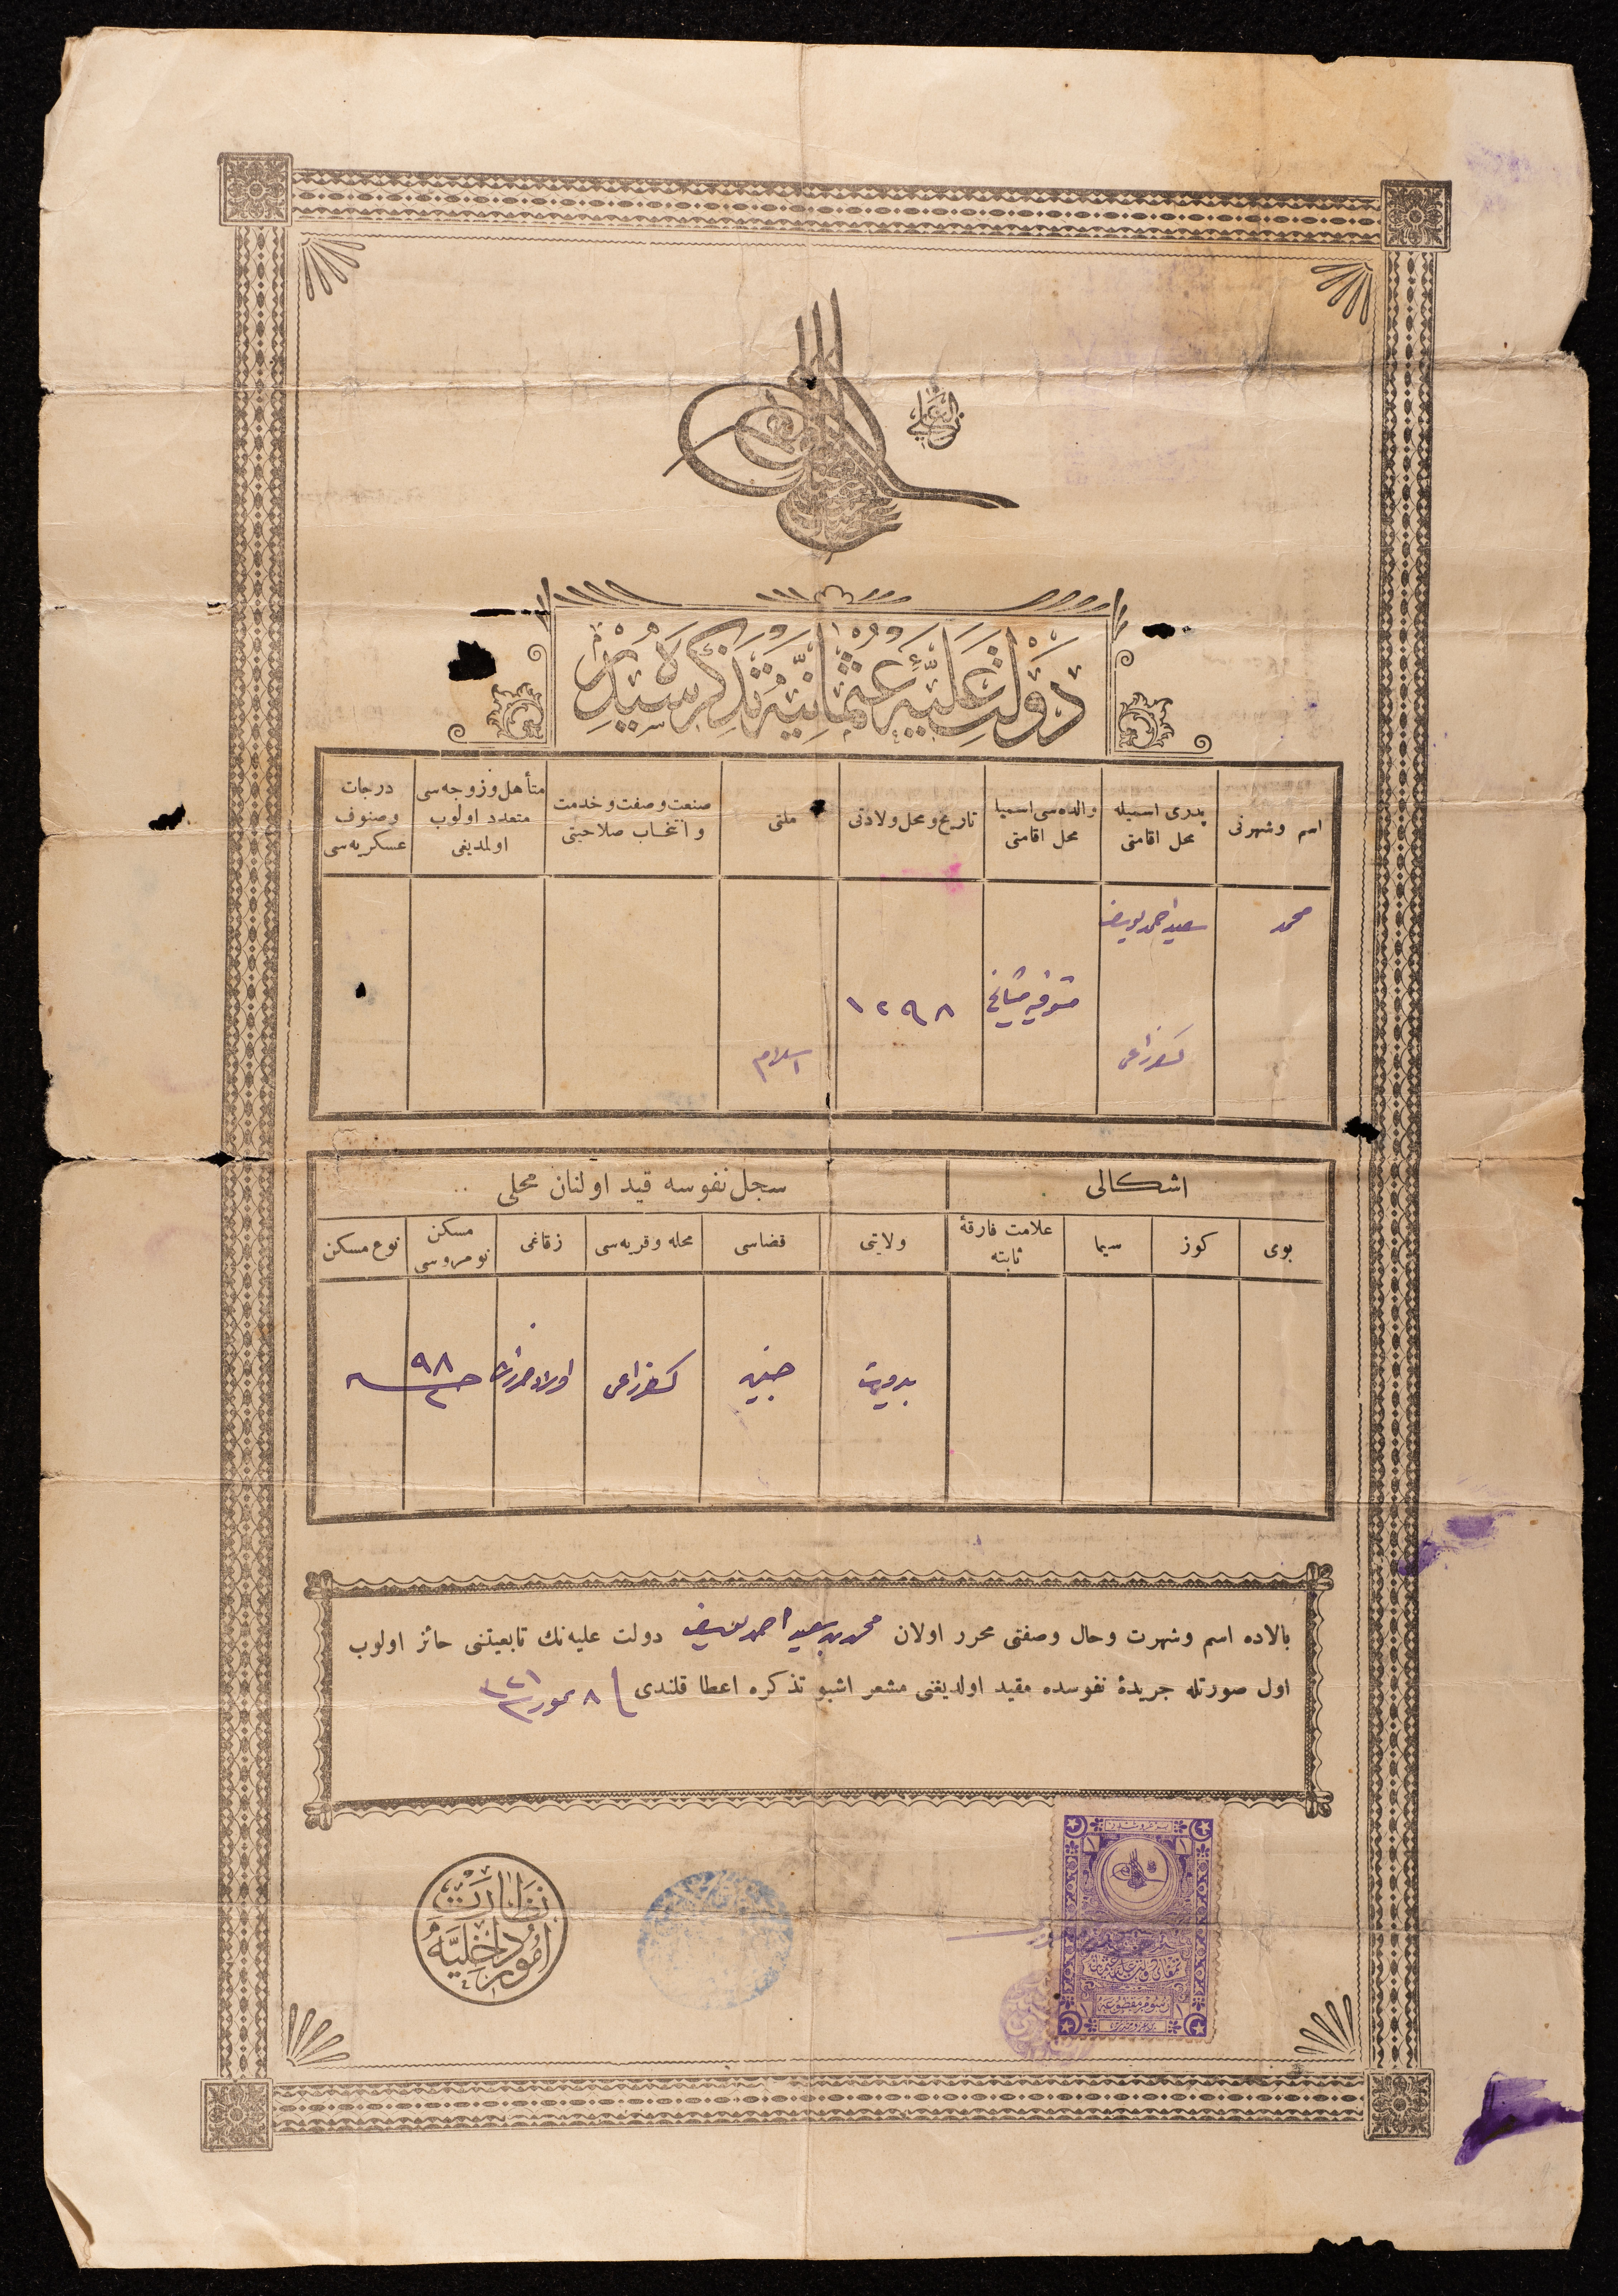 الغازی
دولت علیهٔ عثمانیه تذکره سیدر
اسم وشهرتی
پدری اسمیله محل اقامتی
والده سی اسمیا محل اقامتی
تاریخ ومحل ولادتی
ملتی
صنعت وصفت وخدمت وانتخاب صلاحیتی
متأهل وزوجه سی متعدد اولوب اولمدیغی
درجات وصنوف عسکریه سی
محمد
سعید احمد یوسف
کفرراعی
١٢٩٨
اسلام
اشکالی
سجل نفوسه قید اولنان محلی
بوی
کوز
سیما
علامت فارقهٔ ثابته
ولایتی
قضاسی
محله وقریه سی
زقاغی
مسکن نومروسی
نوع مسکن
بیروت
جنین
کفرراعی
٩٨
٢
بالاده اسم وشهرت وحال وصفتی محرر اولان محمد بن سعید احمد یوسف دولت علیه نك تابعیتنی حائز اولوب
اول صورتله جریدهٔ نفوسده مقید اولدیغنی مشعر اشبو تذکره اعطا قلندی ٨ تموز ٣٢١
نظارت
امور داخلیه
رسوم مقطوعه